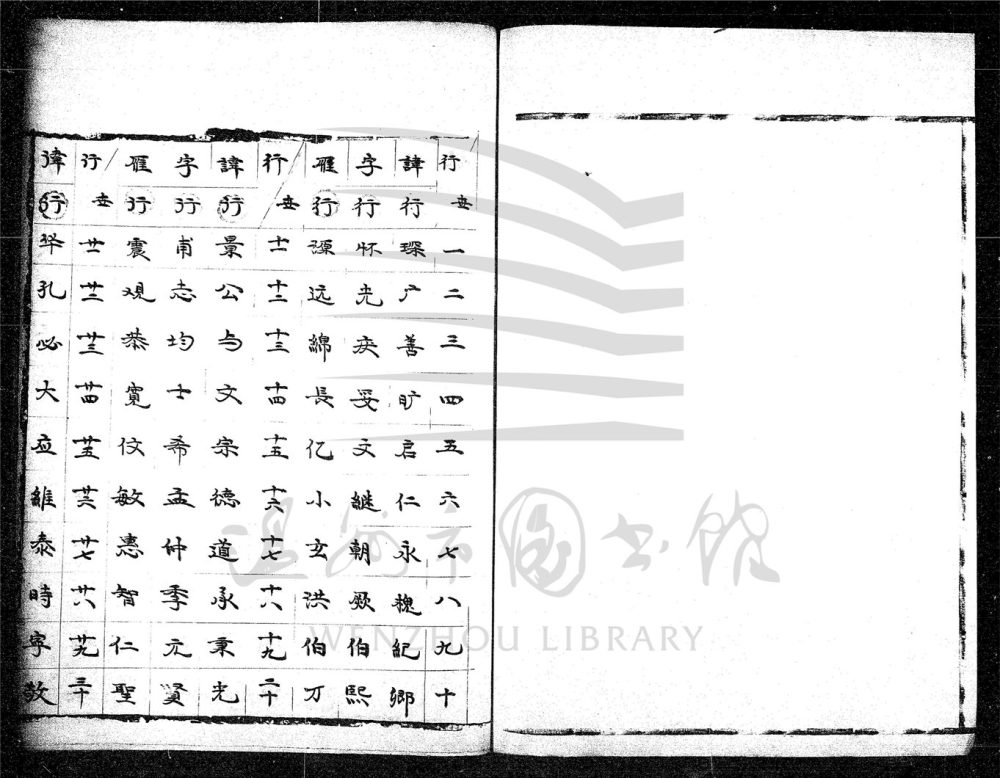 行世一二三四五六七八九十
諱行琛广善旷启仁永槐紀卿
字行怀光疾妥文继朝厥伯熙
雁行源远綿長亿小玄洪伯万
行世十一十二十三十四十五十六十七十八十九二十
諱行景公与文宗德道承秉光
字行甫志均士希孟仲季元賢
雁行震观恭寬伩敏惠智仁聖
行世廿一廿二廿三廿四廿五廿六廿七廿八廿九三十
諱行孔必大应維泰時字敬
温州市图书馆
WENZHOU LIBRARY